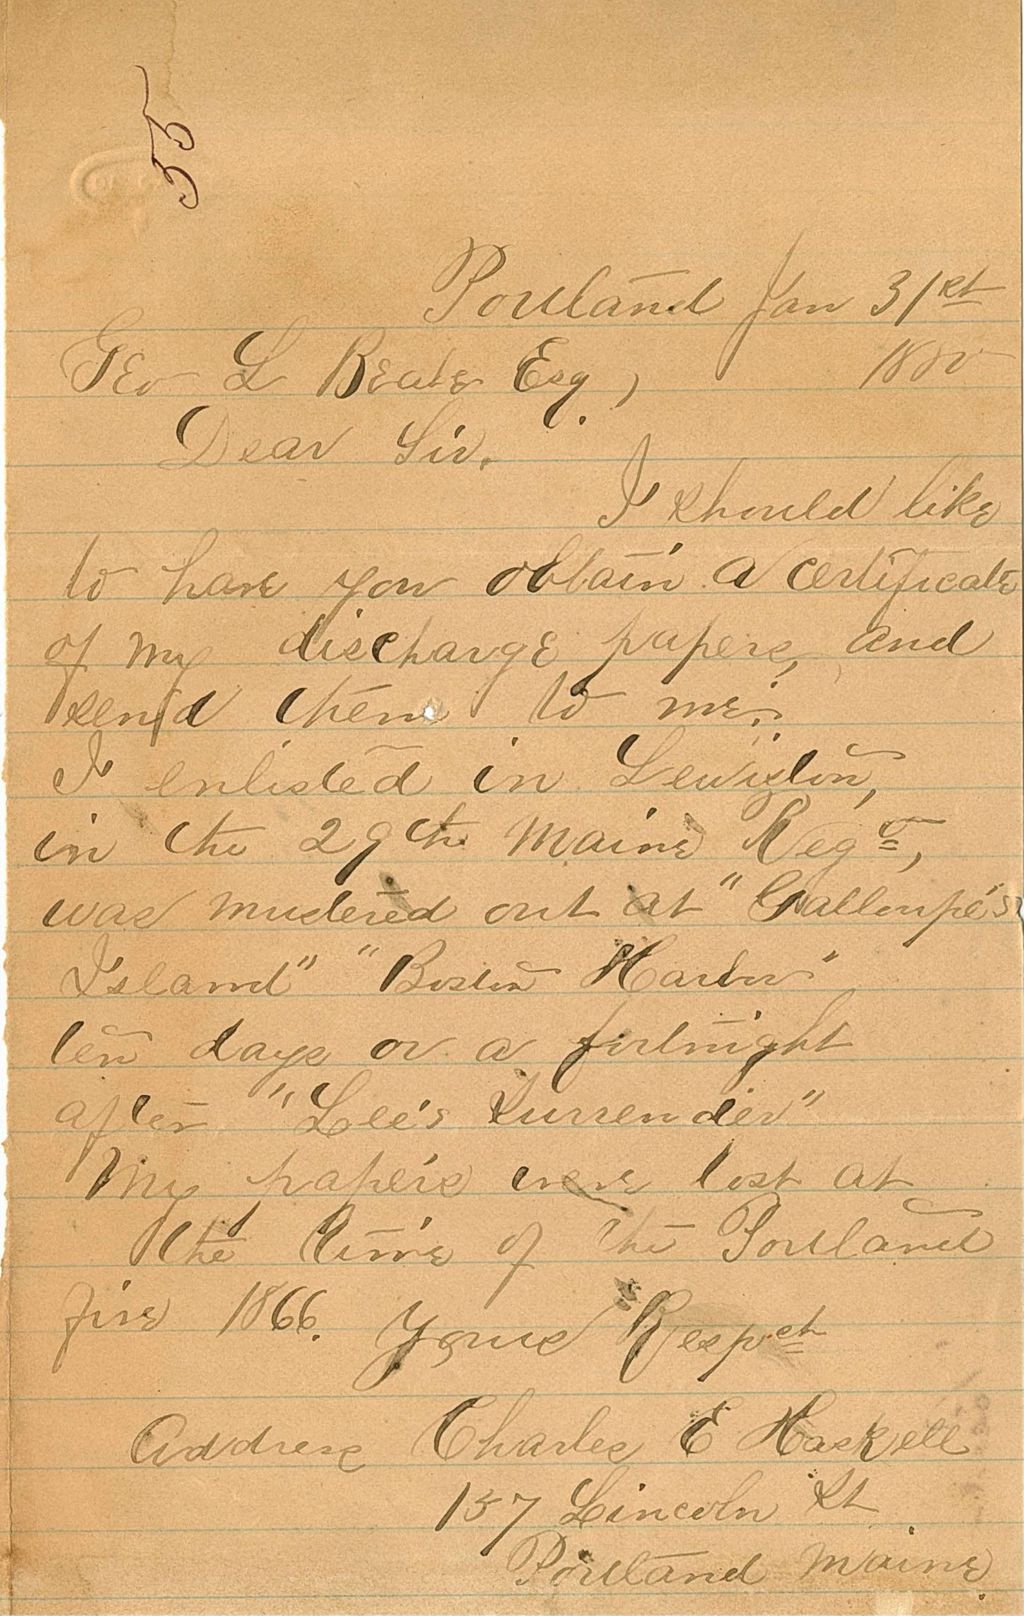 55
Portland Jan 31st
Geo L Beale Esq,
1880
Dear Sir.
I should like
to have you obtain a certificate
of my discharge papers, and
send them to me.
I enlisted in Lewiston,
in the 29th Maine Rego,
was mustered out at "Galloupe's
Island" "Boston Harbor"
ten days or a fortnight
after "Lee's Surrender"
My papers were lost at
the time of the Portland
fire 1866.
Yours Respct
Address Charles E Haskell
157 Lincoln St
Portland Maine